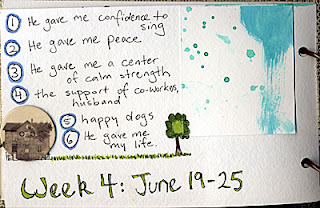 1 He gave me confidence to
sing
2 He gave me peace
3 He gave me a center
of calm strength
4 the support of co-workers,
husband
5 happy dogs
6 He gave me
my life.
Week 4: June 19-25